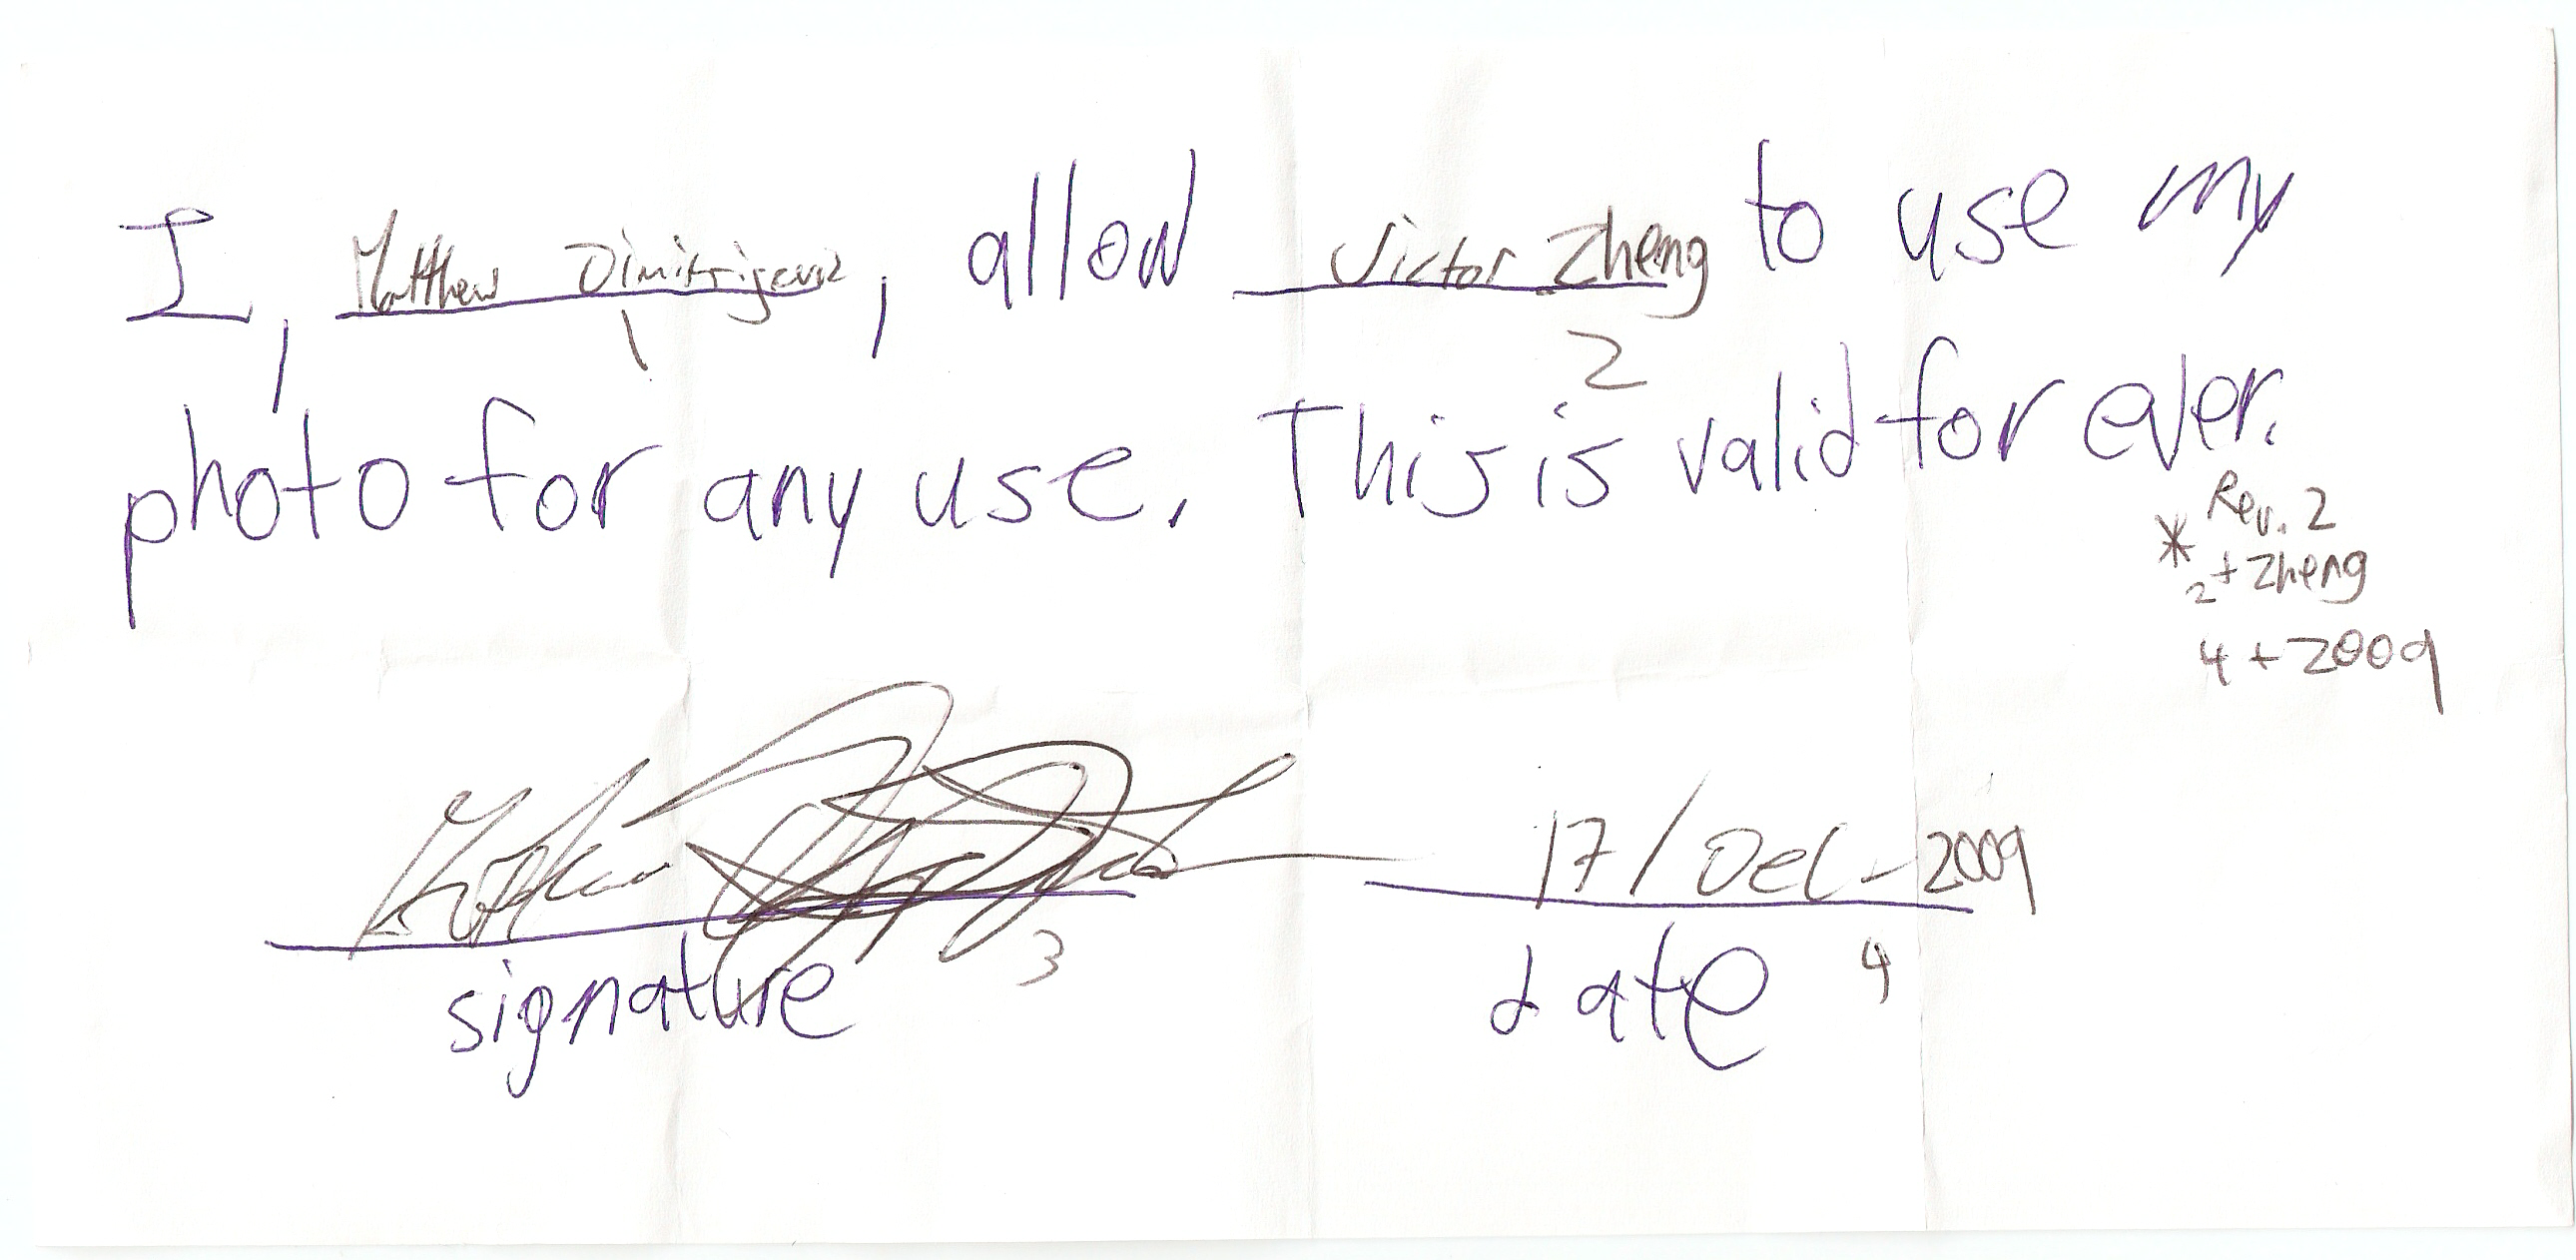 I, Matthew Dimitrijevic, allow Victor Zheng to use my
1 2
photo for any use. This is valid for ever.
* Rev. 2
2 + Zheng
4 + 2009
17/Dec-2009
3 4
signature date